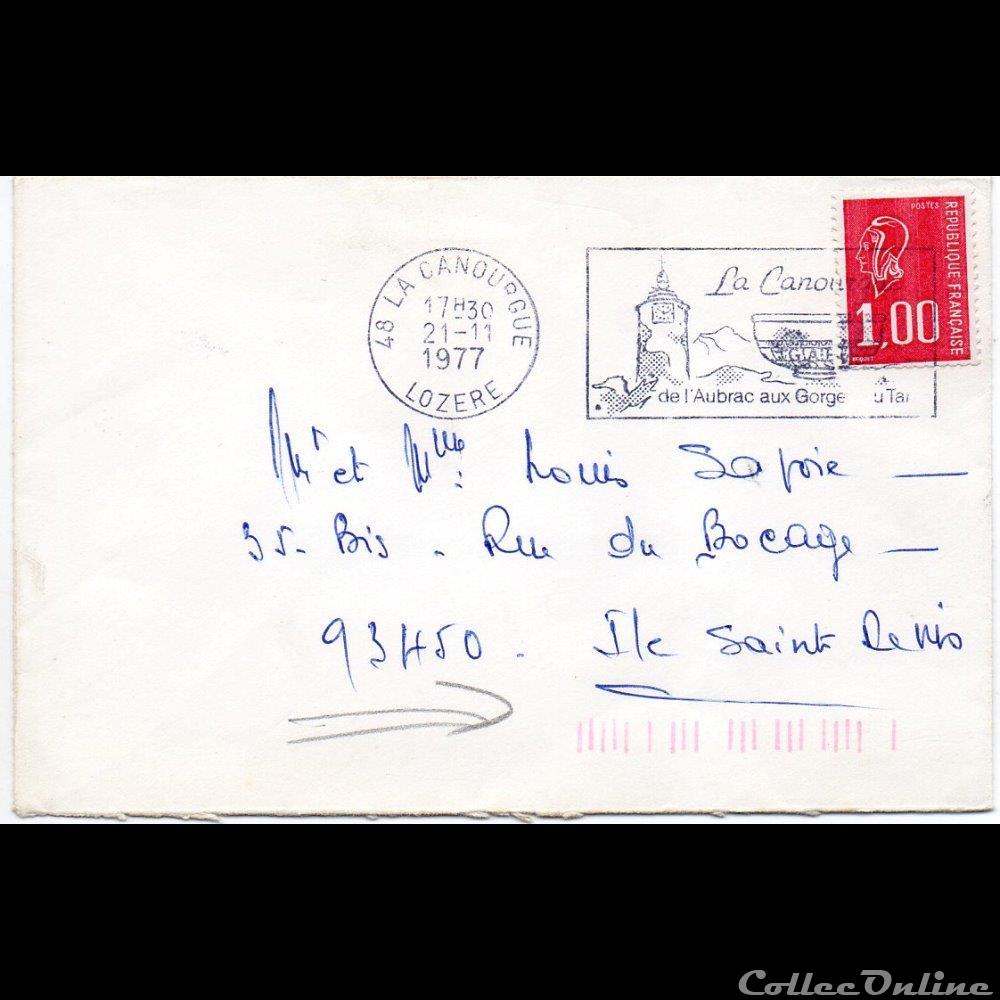 POSTES
RÉPUBLIQUE FRANÇAISE
1,00
48 LA CANOURGUE
17H30
21-11
1977
LOZERE
La Canourgue
de l'Aubrac aux Gorge u Tar
Mr et Mme : Louis Savoie —
35- Bis - Rue du Bocage —
93450 - Ile Saint Denis
CollecOnline